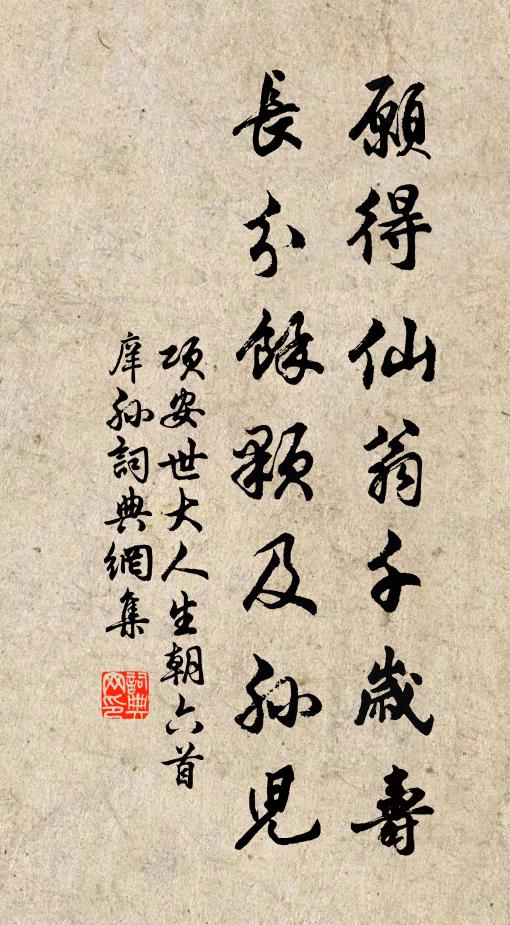 願得仙翁千歲壽
長分餘顆及孫兒
項安世大人生朝六首
庠孫詞典網集
詞典網印